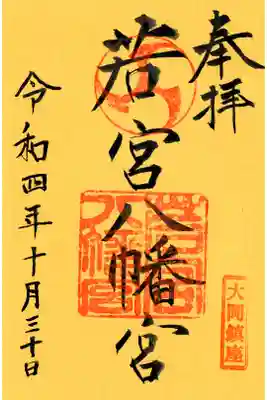 奉拝
若宮八幡宮
大岡鎮座
令和四年十月三十日